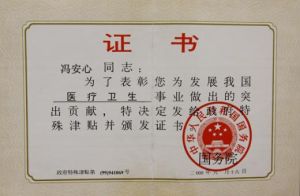 证书
冯安心 同志：
为了表彰您为发展我国
医疗卫生 事业做出的突
出贡献，特决定发给政府特
殊津贴并颁发证书
中华人民共和国国务院
国务院
政府特殊津贴第